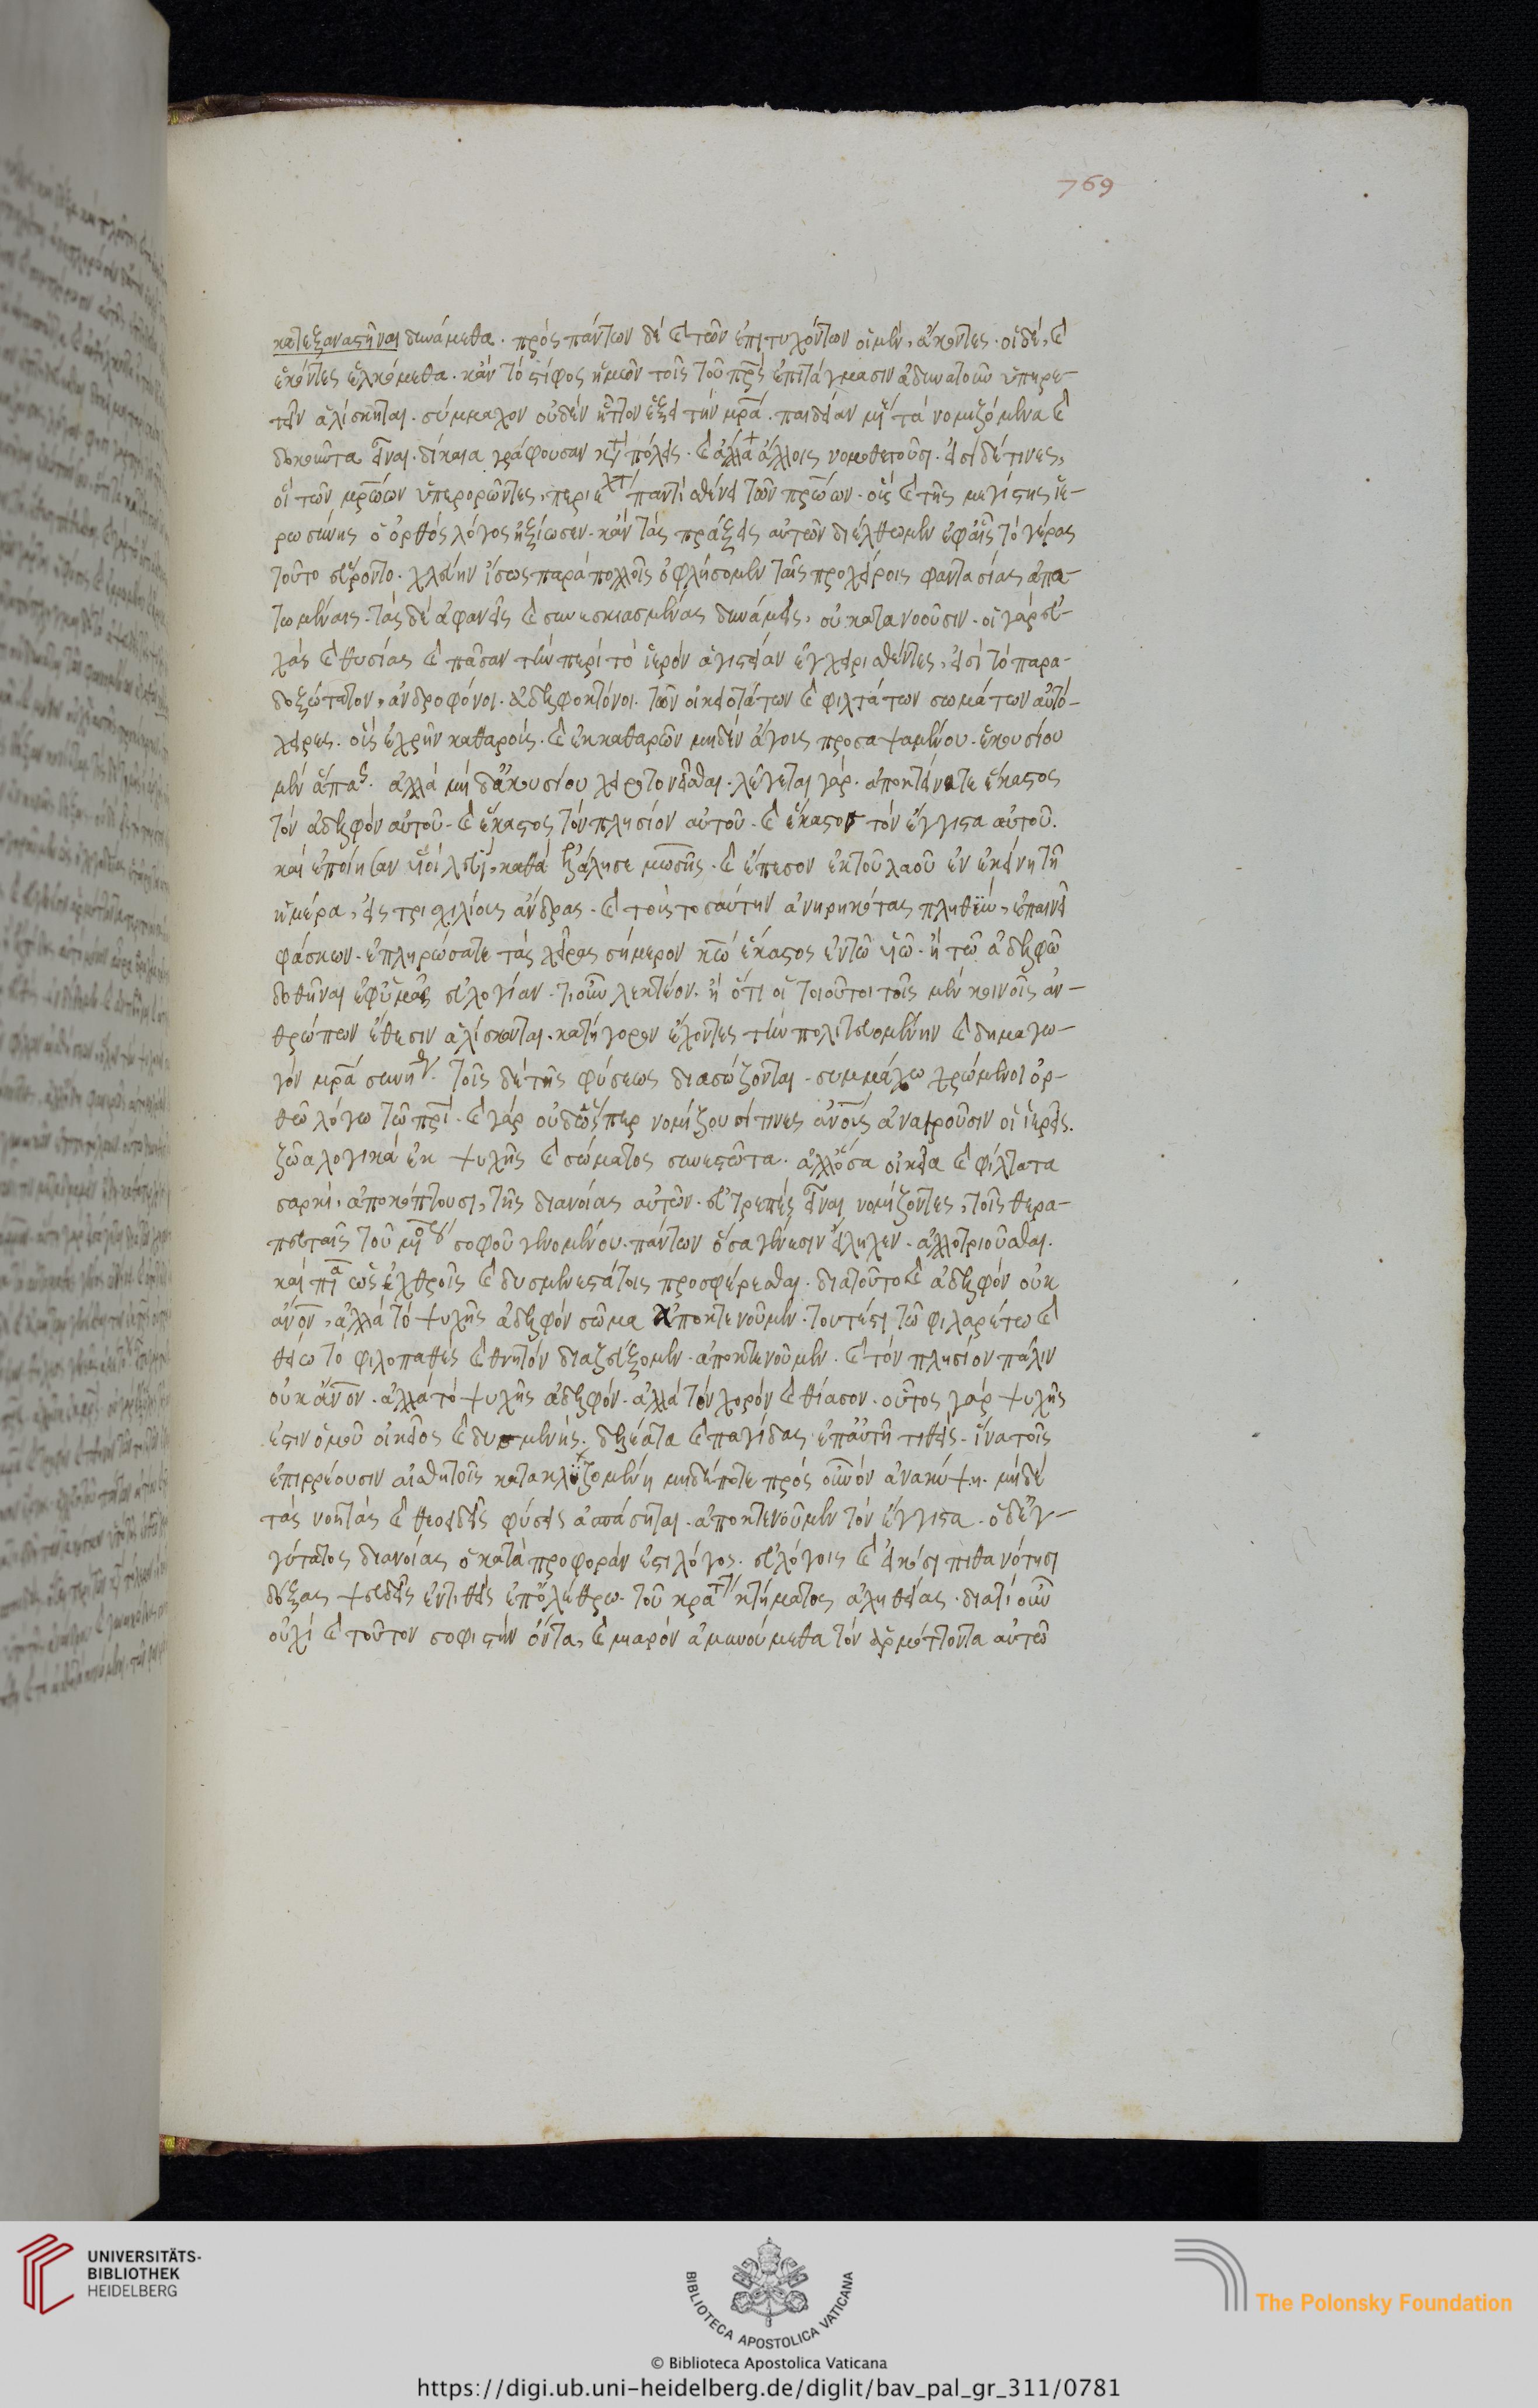 769
κατεξαναστῆναι δυνάμεθα. πρὸς πάντων δὲ καὶ τῶν ἐπιτυχόντων οἱ μὲν, ἄκοντες. οἱ δὲ, καὶ
ἑκόντες ἑλκόμεθα. κἂν τὸ στίφος ἡμῶν τοῖς τοῦ πρς ἐπιτάγμασιν ἀδυνατοῦν ὑπηρε-
τεῖν ἁλίσκηται. σύμμαχον οὐδὲν ἧττον ἕξει τὴν μρα. παιδείαν μέ τὰ νομιζόμενα καὶ
δοκοῦντα εἶναι. δίκαια γράφουσαν κτ πόλεις. καὶ ἄλλα ἄλλοις νομοθετοῦσι. εἰσὶ δέ τινες,
οἳ τῶν μρώων ὑπερορῶντες, περιέχτ παντὶ σθένει τῶν πρώων. οὓς καὶ τῆς μεγίστης ἱε-
ρωσύνης ὁ ὀρθὸς λόγος ἠξίωσεν. κἂν τὰς πράξεις αὐτῶν διέλθωμεν ἐφαἷς τὸ γέρας
τοῦτο εὕροντο. χλεύην ἴσως παρὰ πολλοῖς ὀφλήσομεν ταῖς προχείροις φαντασίας ἀπα-
τωμέναις. τὰς δὲ ἀφανεῖς καὶ συνεσκιασμένας δυνάμεις, οὐ κατανοοῦσιν. οἱ γὰρ εὐ-
χὰς καὶ θυσίας καὶ πᾶσαν τὴν περὶ τὸ ἱερὸν ἁγιστείαν ἐγχειρισθέντες, εἰσὶ τὸ παρα-
δοξότατον, ἀνδροφόνοι. ἀδελφοκτόνοι. τῶν οἰκειοτάτων καὶ φιλτάτων σωμάτων αὐτό-
χειρες. οὓς ἐχρῆν καθαροὺς. καὶ ἐκ καθαρῶν μηδὲν ἄγοις προσαψαμένου. ἑκουσίου
μὲν ἅπας. ἀλλὰ μὴ δ᾽ἀκουσίου χειροτονεῖσθαι. λέγεται γάρ. ἀποκτείνατε ἕκαστος
τὸν ἀδελφὸν αὐτοῦ. καὶ ἕκαστος τὸν πλησίον αὐτοῦ. καὶ ἕκαστον τὸν ἔγγιστα αὐτοῦ.
καὶ ἐποίησαν υἱοὶ λευὶ, καθὰ ἐλάλησε μωσῆς. καὶ ἔπεσον ἐκ τοῦ λαοῦ ἐν ἐκείνῃ τῇ
ἡμέρα, εἰς τρισχιλίους ἄνδρας. καὶ τοὺς τοσαύτην ἀνῃρηκότας πληθὺν, ἐπαινεῖ
φάσκων. ἐπληρώσατε τὰς χεῖρας σήμερον κω ἕκαστος ἐν τῷ υἱῷ. ἢ τῷ ἀδελφῷ
δοθῆναι ἐφ᾽ὑμᾶς εὐλογίαν. τι οὖν λεκτέον. ἢ ὅτι οἱ τοιοῦτοι τοῖς μὲν κοινοῖς ἀν-
θρώπων ἔθεσιν ἁλίσκονται. κατήγορον ἔχοντες τὴν πολιτευομένην καὶ δημαγω-
γὸν μρα συνήθ. τοῖς δὲ τῆς φύσεως διασώζονται. συμμάχω χρώμενοι ὀρ-
θῷ λόγω τῷ πρι. καὶ γὰρ οὐδ᾽ὥσπερ νομίζουσί τινες ἀνους ἀναιροῦσιν οἱ ἱερεῖς.
ζῶα λογικὰ ἐκ ψυχῆς καὶ σώματος συνεστῶτα. ἀλλ᾽ὅσα οἰκεῖα καὶ φίλτατα
σαρκὶ, ἀποκόπτουσι, τῆς διανοίας αὐτῶν. εὐπρεπὲς εἶναι νομίζοντες, τοῖς θερα-
πευταῖς τοῦ μό σοφοῦ γενομένου. πάντων ὅσα γένεσιν εἴληχεν. ἀλλοτριοῦσθαι.
καὶ πᾶσι ὡς ἐχθροῖς καὶ δυσμενεστάτοις προσφέρεσθαι. διατοῦτο καὶ ἀδελφὸν οὐκ
ἀνον, ἀλλὰ τὸ ψυχῆς ἀδελφὸν σῶμα ἀποκτενοῦμεν. τουτέστι τῷ φιλαρέτω καὶ
θείω τὸ φιλοπαθὲς καὶ θνητὸν διαζεύξομεν. ἀποκτενοῦμεν. καὶ τὸν πλησίον πάλιν
οὐκ ἄνον. ἀλλὰ τὸ ψυχῆς ἀδελφὸν. ἀλλὰ τὸν χορὸν καὶ θίασον. οὗτος γὰρ ψυχῆς
ἐστιν ὁμοῦ οἰκεῖος καὶ δυσμενὴς. δελέατα καὶ παγίδας ἐπ᾽αὐτῇ τιθεὶς. ἵνα τοῖς
ἐπιρρέουσιν αἰσθητοῖς κατακλυζομένη μηδέποτε πρὸς οὐνὸν ἀνακύψη. μηδὲ
τὰς νοητὰς καὶ θεοειδεῖς φύσεις ἀσπάσηται. ἀποκτενοῦμεν τὸν ἔγγιστα. ὁ δ᾽ἐγ-
γύτατος διανοίας ὁ κατὰ προφορὰν ἐστι λόγος. εὐλόγοις καὶ εἰκόσι πιθανότησι
δόξας ψευδεῖς ἐντιθεὶς ἐπ᾽ὀλέθρω. τοῦ κρατ κτήματος ἀληθείας. διατί οὖν
οὐχὶ καὶ τοῦτον σοφιστὴν ὄντα, καὶ μιαρὸν ἀμυνούμεθα τὸν ἁρμόττοντα αὐτῷ
UNIVERSITÄTS-
BIBLIOTHEK
HEIDELBERG
BIBLIOTECA APOSTOLICA VATICANA
© Biblioteca Apostolica Vaticana
The Polonsky Foundation
https://digi.ub.uni-heidelberg.de/diglit/bav_pal_gr_311/0781